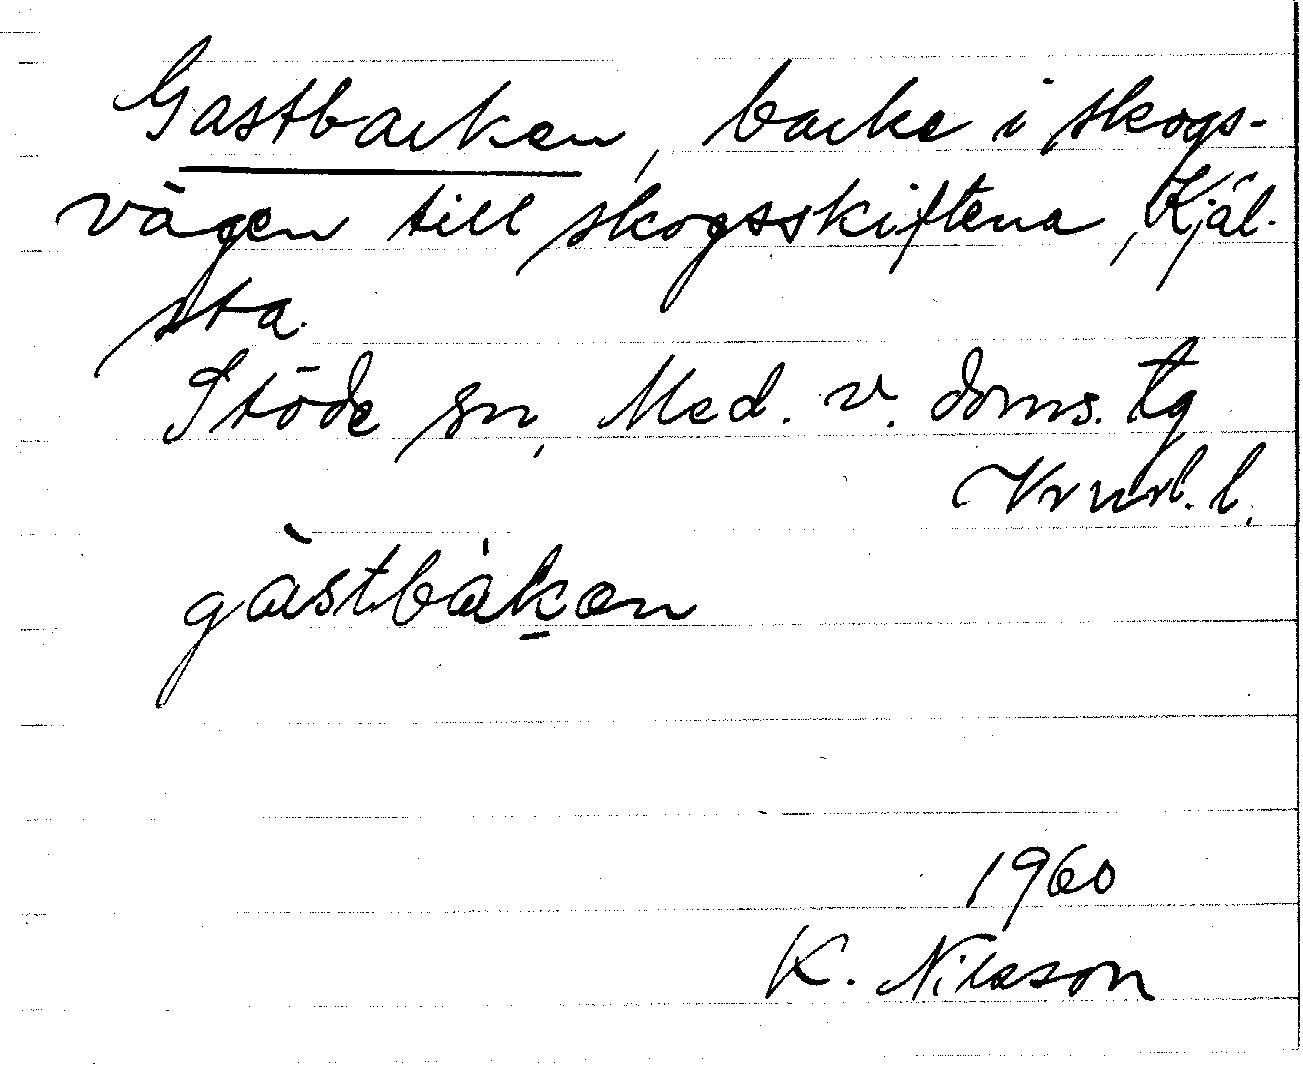 Gastbacken, backe i skogs-
vägen till skogsskiftena, Kjäl-
sta.
Stöde sn, Med. v. doms. tg
Vrnrl. l.
gàstbàken
1960
K. Nilsson